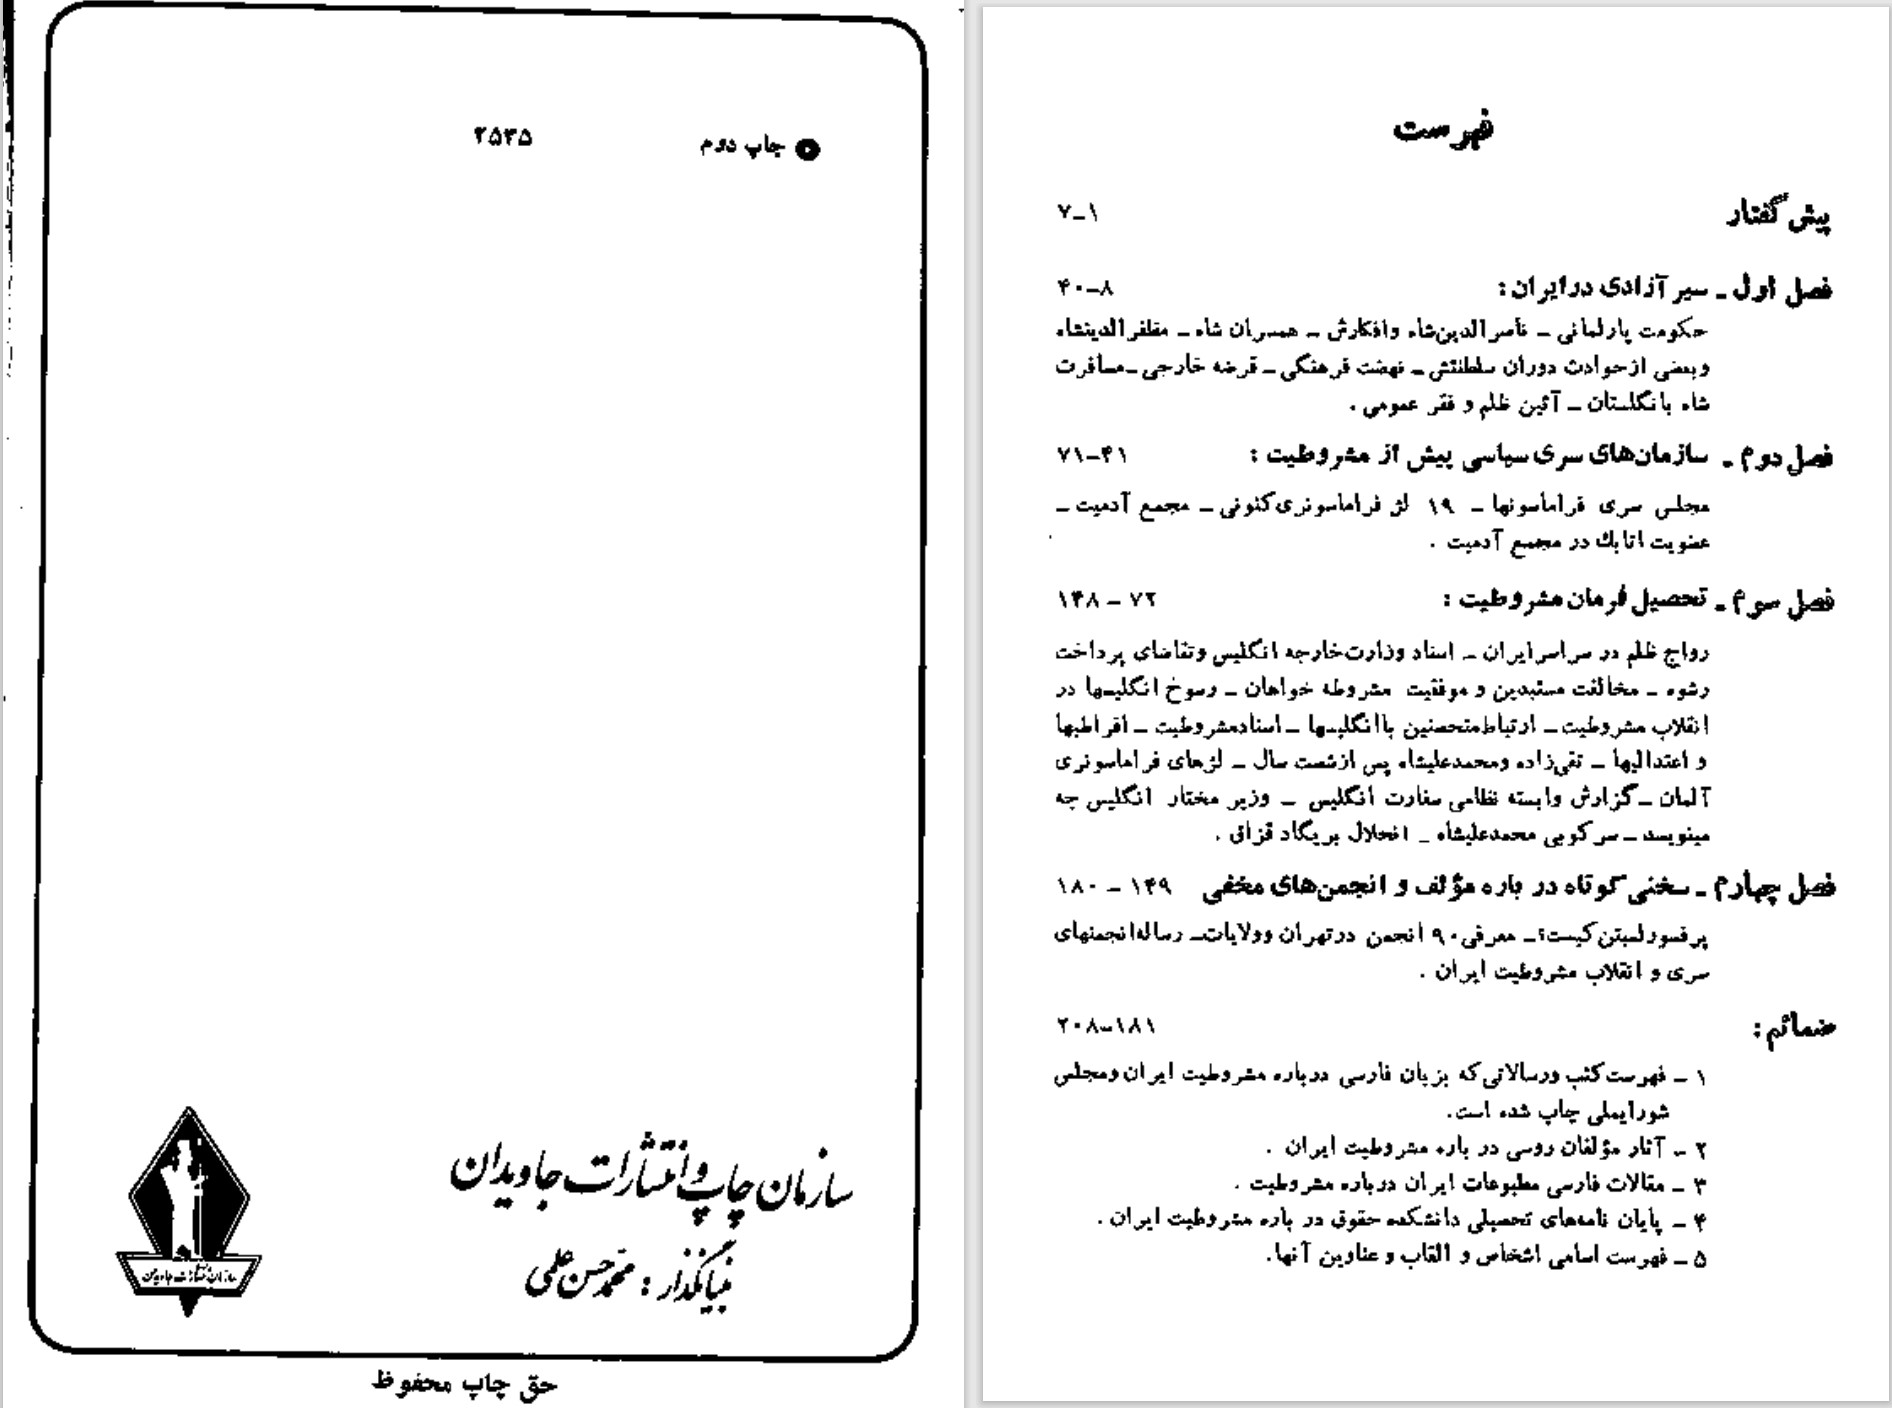 چاپ دوم ۲۵۳۵
سازمان چاپ و انتشارات جاویدان
بنیانگذار : محمدحسن علمی
سازمان انتشارات جاویدان
حق چاپ محفوظ
فهرست
پیش گفتار ۱-۷
فصل اول ـ سیر آزادی در ایران : ۸-۴۰
حکومت پارلمانی ـ ناصرالدین‌شاه وافکارش ـ همسران شاه ـ مظفرالدینشاه
وبعضی ازحوادث دوران سلطنتش ـ نهضت فرهنگی ـ قرضه خارجی ـ مسافرت
شاه بانگلستان ـ آئین ظلم و فقر عمومی .
فصل دوم ـ سازمان‌های سری سیاسی پیش از مشروطیت : ۴۱-۷۱
مجلس سری فراماسونها ـ ۱۹ لژ فراماسونری‌کنونی ـ مجمع آدمیت ـ
عضویت اتابک در مجمع آدمیت .
فصل سوم ـ تحصیل فرمان مشروطیت : ۷۲ - ۱۴۸
رواج ظلم در سراسر ایران ـ اسناد وزارت‌خارجه انگلیس وتقاضای پرداخت
رشوه ـ مخالفت مستبدین و موفقیت مشروطه خواهان ـ رسوخ انگلیسها در
انقلاب مشروطیت ـ ارتباط متحصنین باانگلیسها ـ اسنادمشروطیت ـ افراطیها
و اعتدالیها ـ تقی‌زاده ومحمدعلیشاه پس ازشصت سال ـ لژهای فراماسونری
آلمان ـ گزارش وابسته نظامی سفارت انگلیس ـ وزیر مختار انگلیس چه
مینویسد ـ سرکوبی محمدعلیشاه ـ انحلال بریگاد قزاق .
فصل چهارم ـ سخنی کوتاه در باره مؤلف و انجمن‌های مخفی ۱۴۹ - ۱۸۰
پرفسور لمبتن‌کیست؟ـ معرفی۹۰ انجمن درتهران وولایات ـ رساله‌انجمنهای
سری و انقلاب مشروطیت ایران .
ضمائم : ۱۸۱-۲۰۸
۱ ـ فهرست‌کتب ورسالاتی‌که بزبان فارسی درباره مشروطیت ایران ومجلس
شورایملی چاپ شده است.
۲ ـ آثار مؤلفان روسی در باره مشروطیت ایران .
۳ ـ مقالات فارسی مطبوعات ایران درباره مشروطیت .
۴ ـ پایان نامه‌های تحصیلی دانشکده حقوق در باره مشروطیت ایران .
۵ ـ فهرست اسامی اشخاص و القاب و عناوین آنها.